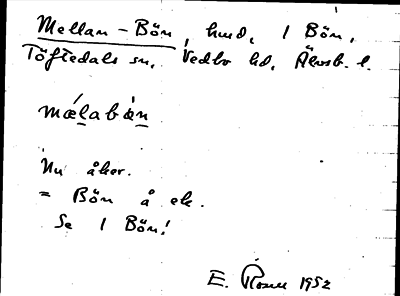 Mellan-Bön, hmd, 1 Bön,
Töftedals sn, Vedbo hd, Älvsb. l.
mǽlabǝ̀n
Nu åker.
= Bön å ek.
Se 1 Bön!
E. Rosell 1952